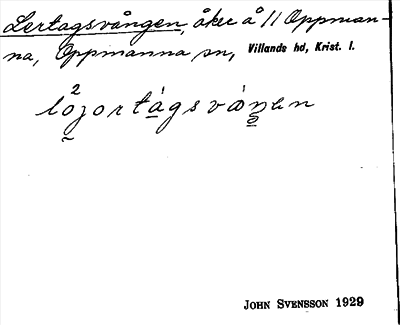 Lertagsvången, åker å 11 Oppman-
na, Oppmanna sn, Villands hd, Krist. l.
lo²jortàgsvànen
JOHN SVENSSON 1929